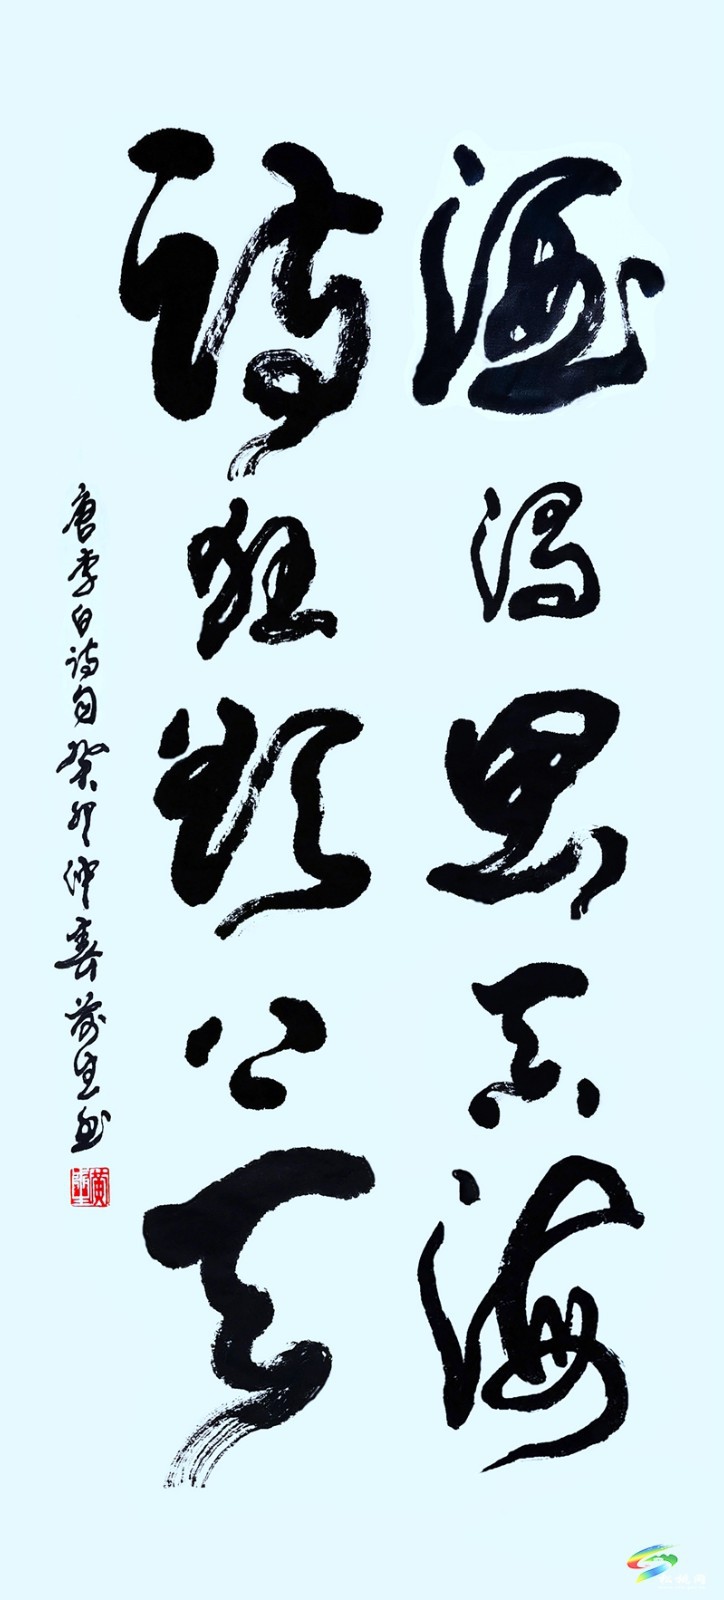 酒渴思吞海
诗狂欲上天
唐李白诗句癸卯仲春生书